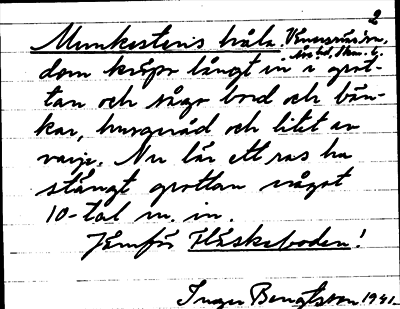 2
Munkestens håla.
dom kröpo långt in i grot-
tan och sågo bord och bän-
kar, husgeråd och litet av
varje. Nu lär ett ras ha
stängt grottan något
10-tal m. in.
Jämför Fläskeboden!
Inger Bengtsson 1941